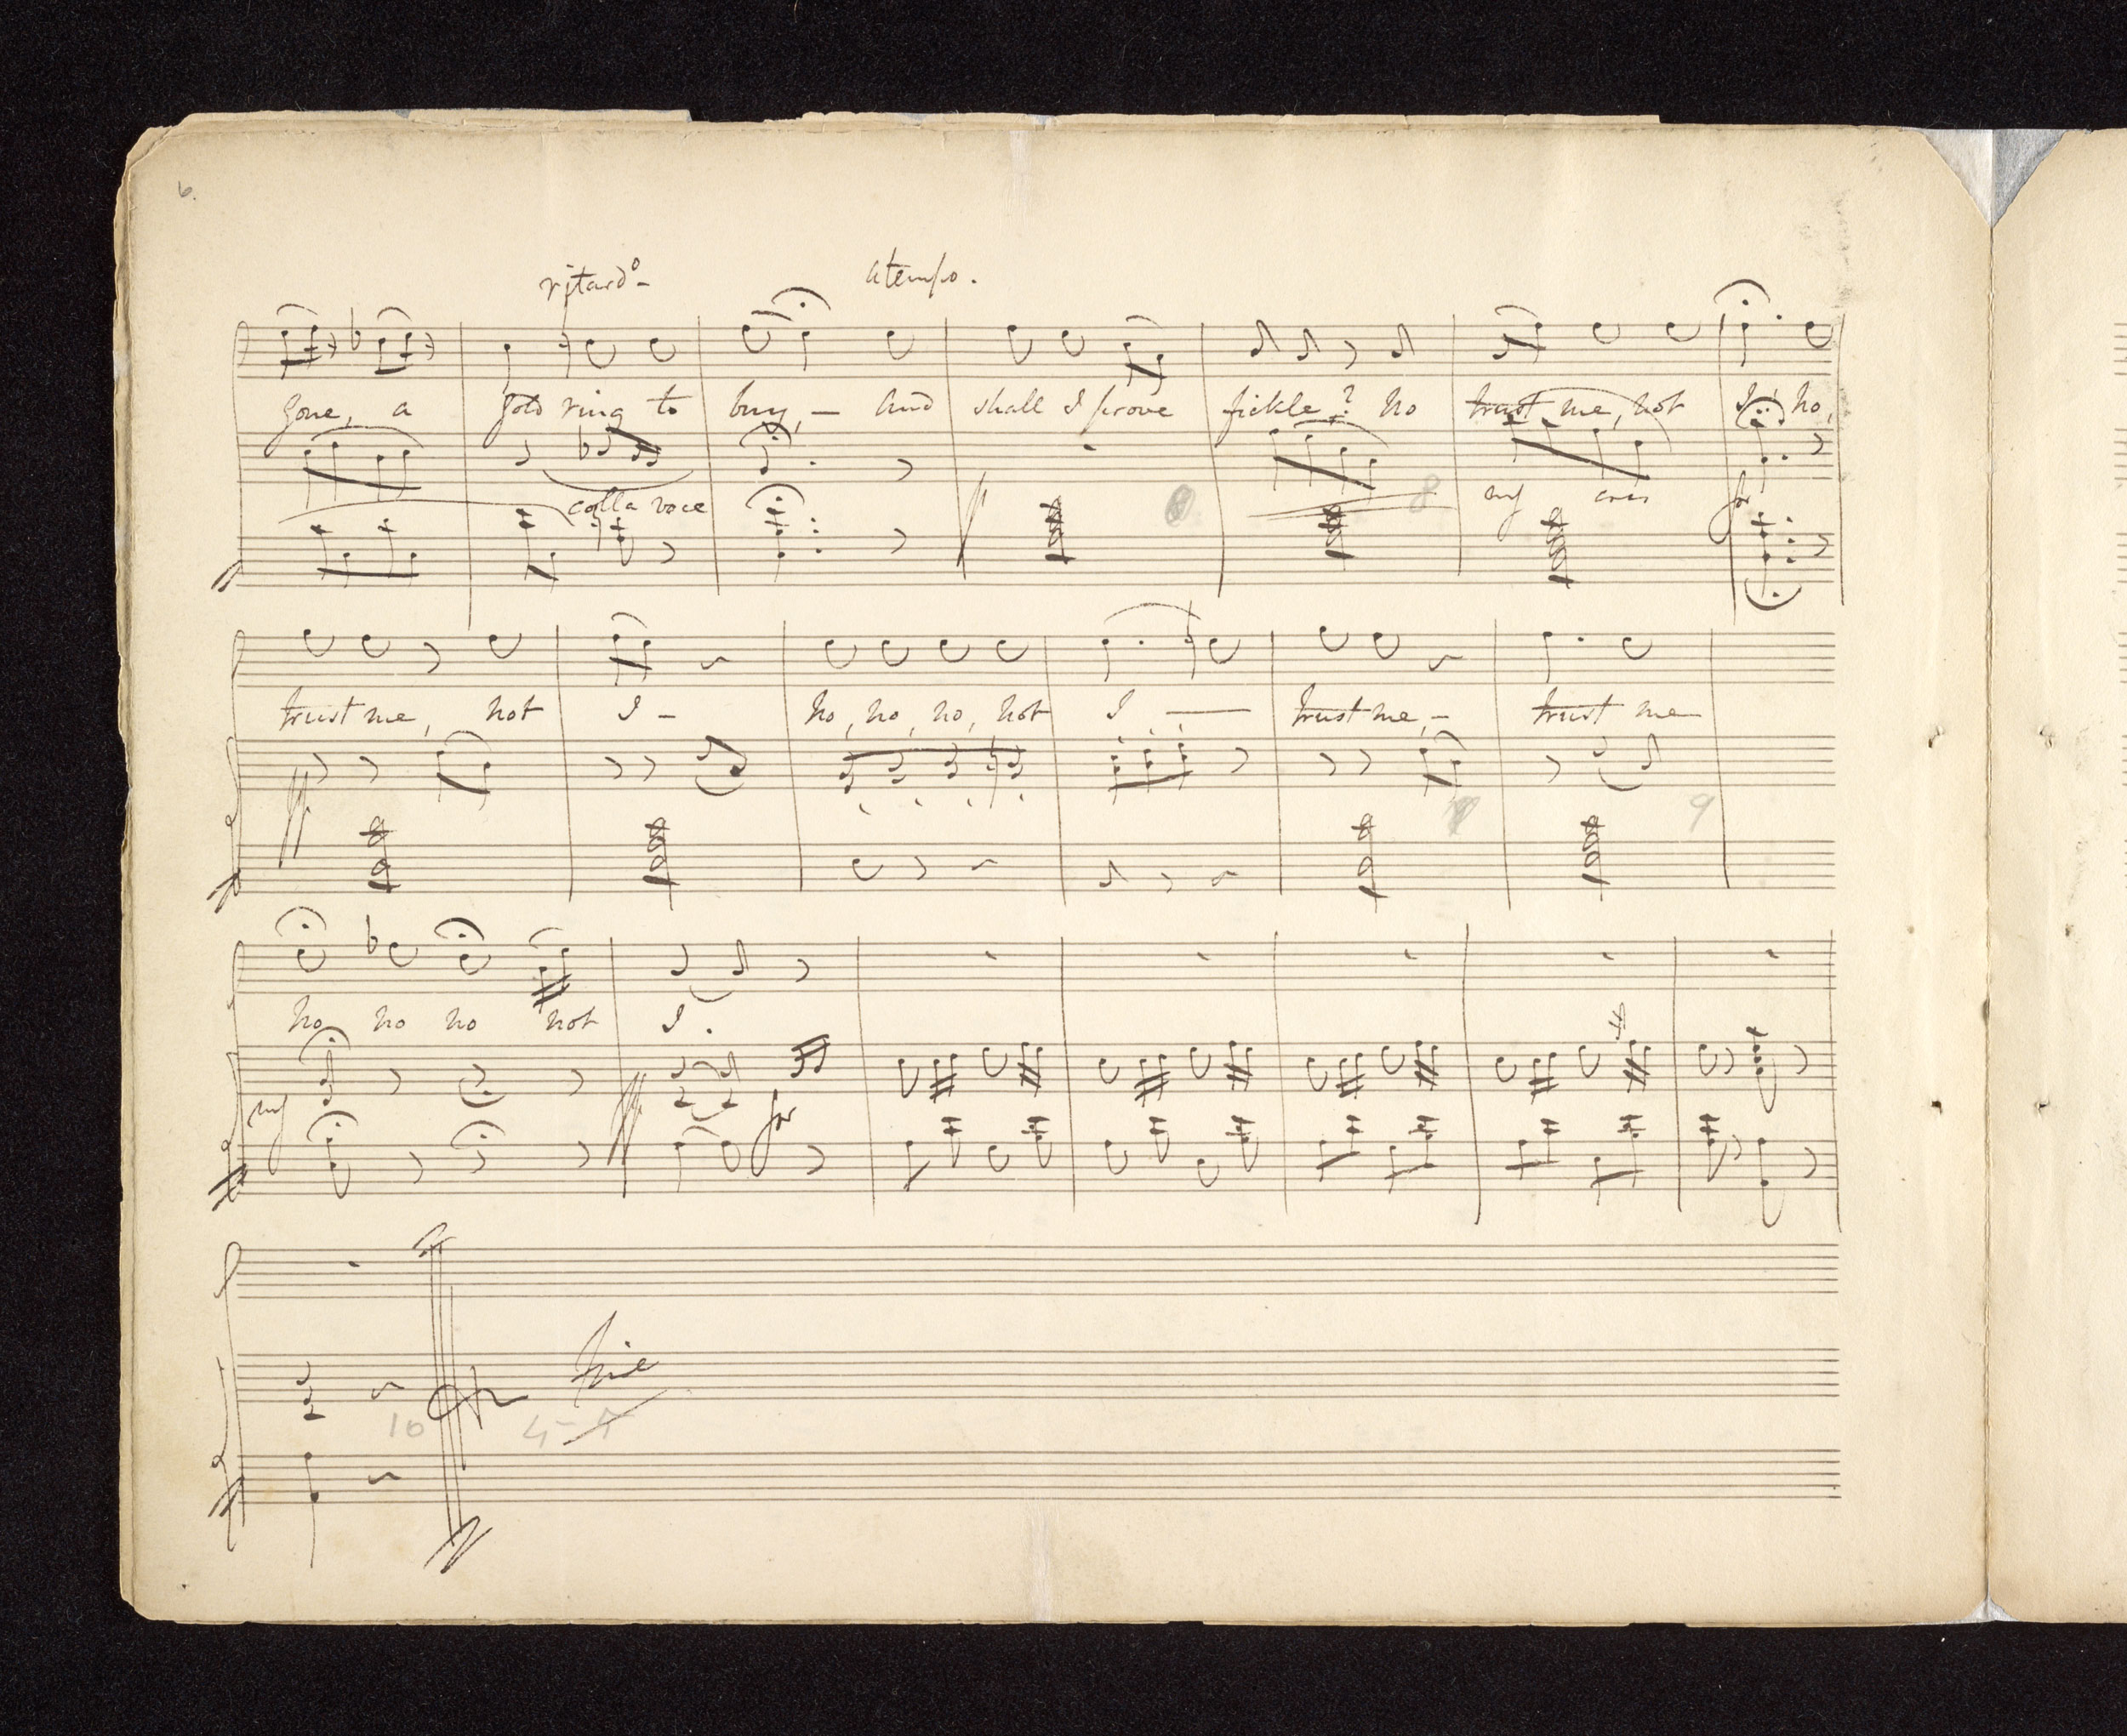 6.
ritardo - a tempo.
gone, a gold ring to buy, - And shall I prove fickle? no trust me, not I! no,
colla voce p 8 mf cres for
trust me, not I - no, no, no, not I - trust me, - trust me
pp 9
no no no not I.
mf pp for
Fine
10 45